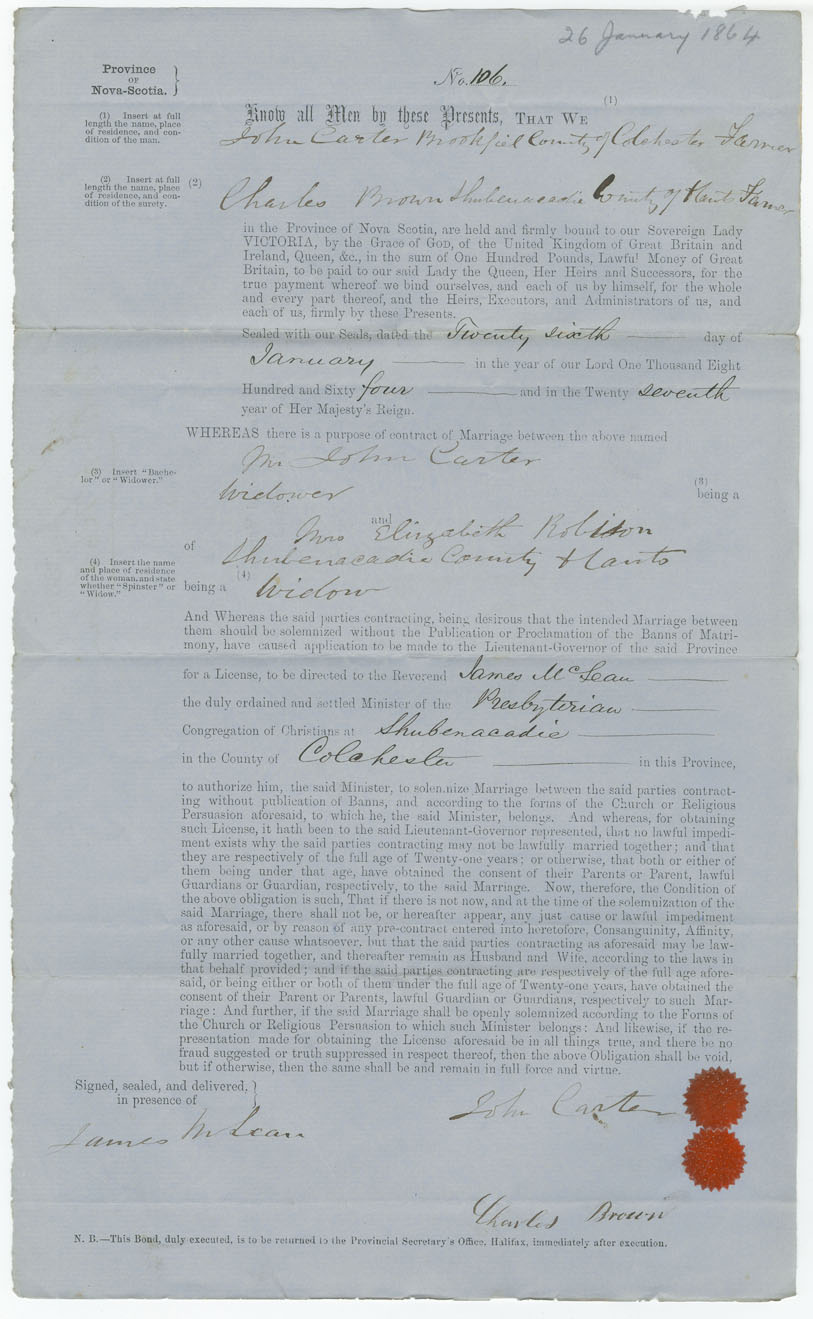 26 January 1864
Province
OF
Nova-Scotia.
No. 106.
(1) Insert at full
length the name, place
of residence, and con-
dition of the man.
(1)
Know all Men by these Presents, THAT WE
John Carter Brookfiel County of Colchester Farmer
(2) Insert at full
length the name, place
of residence, and con-
dition of the surety.
(2)
Charles Brown Shubenacadie County of Hants Farmer
in the Province of Nova Scotia, are held and firmly bound to our Sovereign Lady
VICTORIA, by the Grace of GOD, of the United Kingdom of Great Britain and
Ireland, Queen, &c., in the sum of One Hundred Pounds, Lawful Money of Great
Britain, to be paid to our said Lady the Queen, Her Heirs and Successors, for the
true payment whereof we bind ourselves, and each of us by himself, for the whole
and every part thereof, and the Heirs, Executors, and Administrators of us, and
each of us, firmly by these Presents.
Sealed with our Seals, dated the Twenty sixth day of
January in the year of our Lord One Thousand Eight
Hundred and Sixty four and in the Twenty seventh
year of Her Majesty's Reign.
WHEREAS there is a purpose of contract of Marriage between the above named
Mr John Carter
(3) Insert "Bache-
lor" or "Widower."
(3)
Widower being a
and
Mrs Elizabeth Robison
of Shubenacadie County Hants
(4) Insert the name
and place of residence
of the woman, and state
whether "Spinster" or
"Widow."
(4)
being a Widow
And Whereas the said parties contracting, being desirous that the intended Marriage between
them should be solemnized without the Publication or Proclamation of the Banns of Matri-
mony, have caused application to be made to the Lieutenant-Governor of the said Province
for a License, to be directed to the Reverend James McLean
the duly ordained and settled Minister of the Presbyterian
Congregation of Christians at Shubenacadie
in the County of Colchester in this Province,
to authorize him, the said Minister, to solemnize Marriage between the said parties contract-
ing without publication of Banns, and according to the forms of the Church or Religious
Persuasion aforesaid, to which he, the said Minister, belongs. And whereas, for obtaining
such License, it hath been to the said Lieutenant-Governor represented, that no lawful impedi-
ment exists why the said parties contracting may not be lawfully married together; and that
they are respectively of the full age of Twenty-one years; or otherwise, that both or either of
them being under that age, have obtained the consent of their Parents or Parent, lawful
Guardians or Guardian, respectively, to the said Marriage. Now, therefore, the Condition of
the above obligation is such, That if there is not now, and at the time of the solemnization of the
said Marriage, there shall not be, or hereafter appear, any just cause or lawful impediment
as aforesaid, or by reason of any pre-contract entered into heretofore, Consanguinity, Affinity,
or any other cause whatsoever, but that the said parties contracting as aforesaid may be law-
fully married together, and thereafter remain as Husband and Wife, according to the laws in
that behalf provided; and if the said parties contracting are respectively of the full age afore-
said, or being either or both of them under the full age of Twenty-one years, have obtained the
consent of their Parent or Parents, lawful Guardian or Guardians, respectively to such Mar-
riage: And further, if the said Marriage shall be openly solemnized according to the Forms of
the Church or Religious Persuasion to which such Minister belongs: And likewise, if the re-
presentation made for obtaining the License aforesaid be in all things true, and there be no
fraud suggested or truth suppressed in respect thereof, then the above Obligation shall be void,
but if otherwise, then the same shall be and remain in full force and virtue.
Signed, sealed, and delivered,
in presence of
John Carter
James McLean
Charles Brown
N. B.—This Bond, duly executed, is to be returned to the Provincial Secretary's Office, Halifax, immediately after execution.